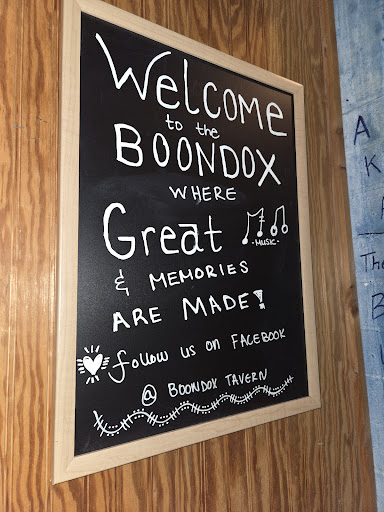 Welcome
to the
BOONDOX
WHERE
Great
MUSIC
& MEMORIES
ARE MADE!
follow us on FACEBOOK
@ BOONDOX TAVERN
A
K
A
Th
B